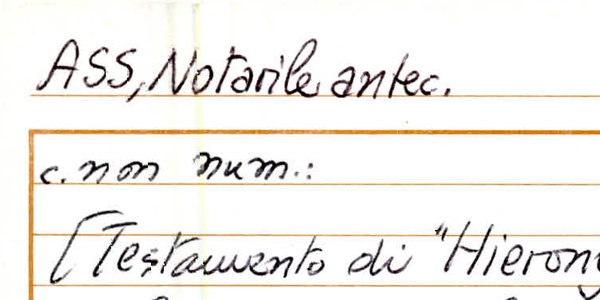 ASS, Notarile antec.
c. non num.:
[Testamento di "Hieron